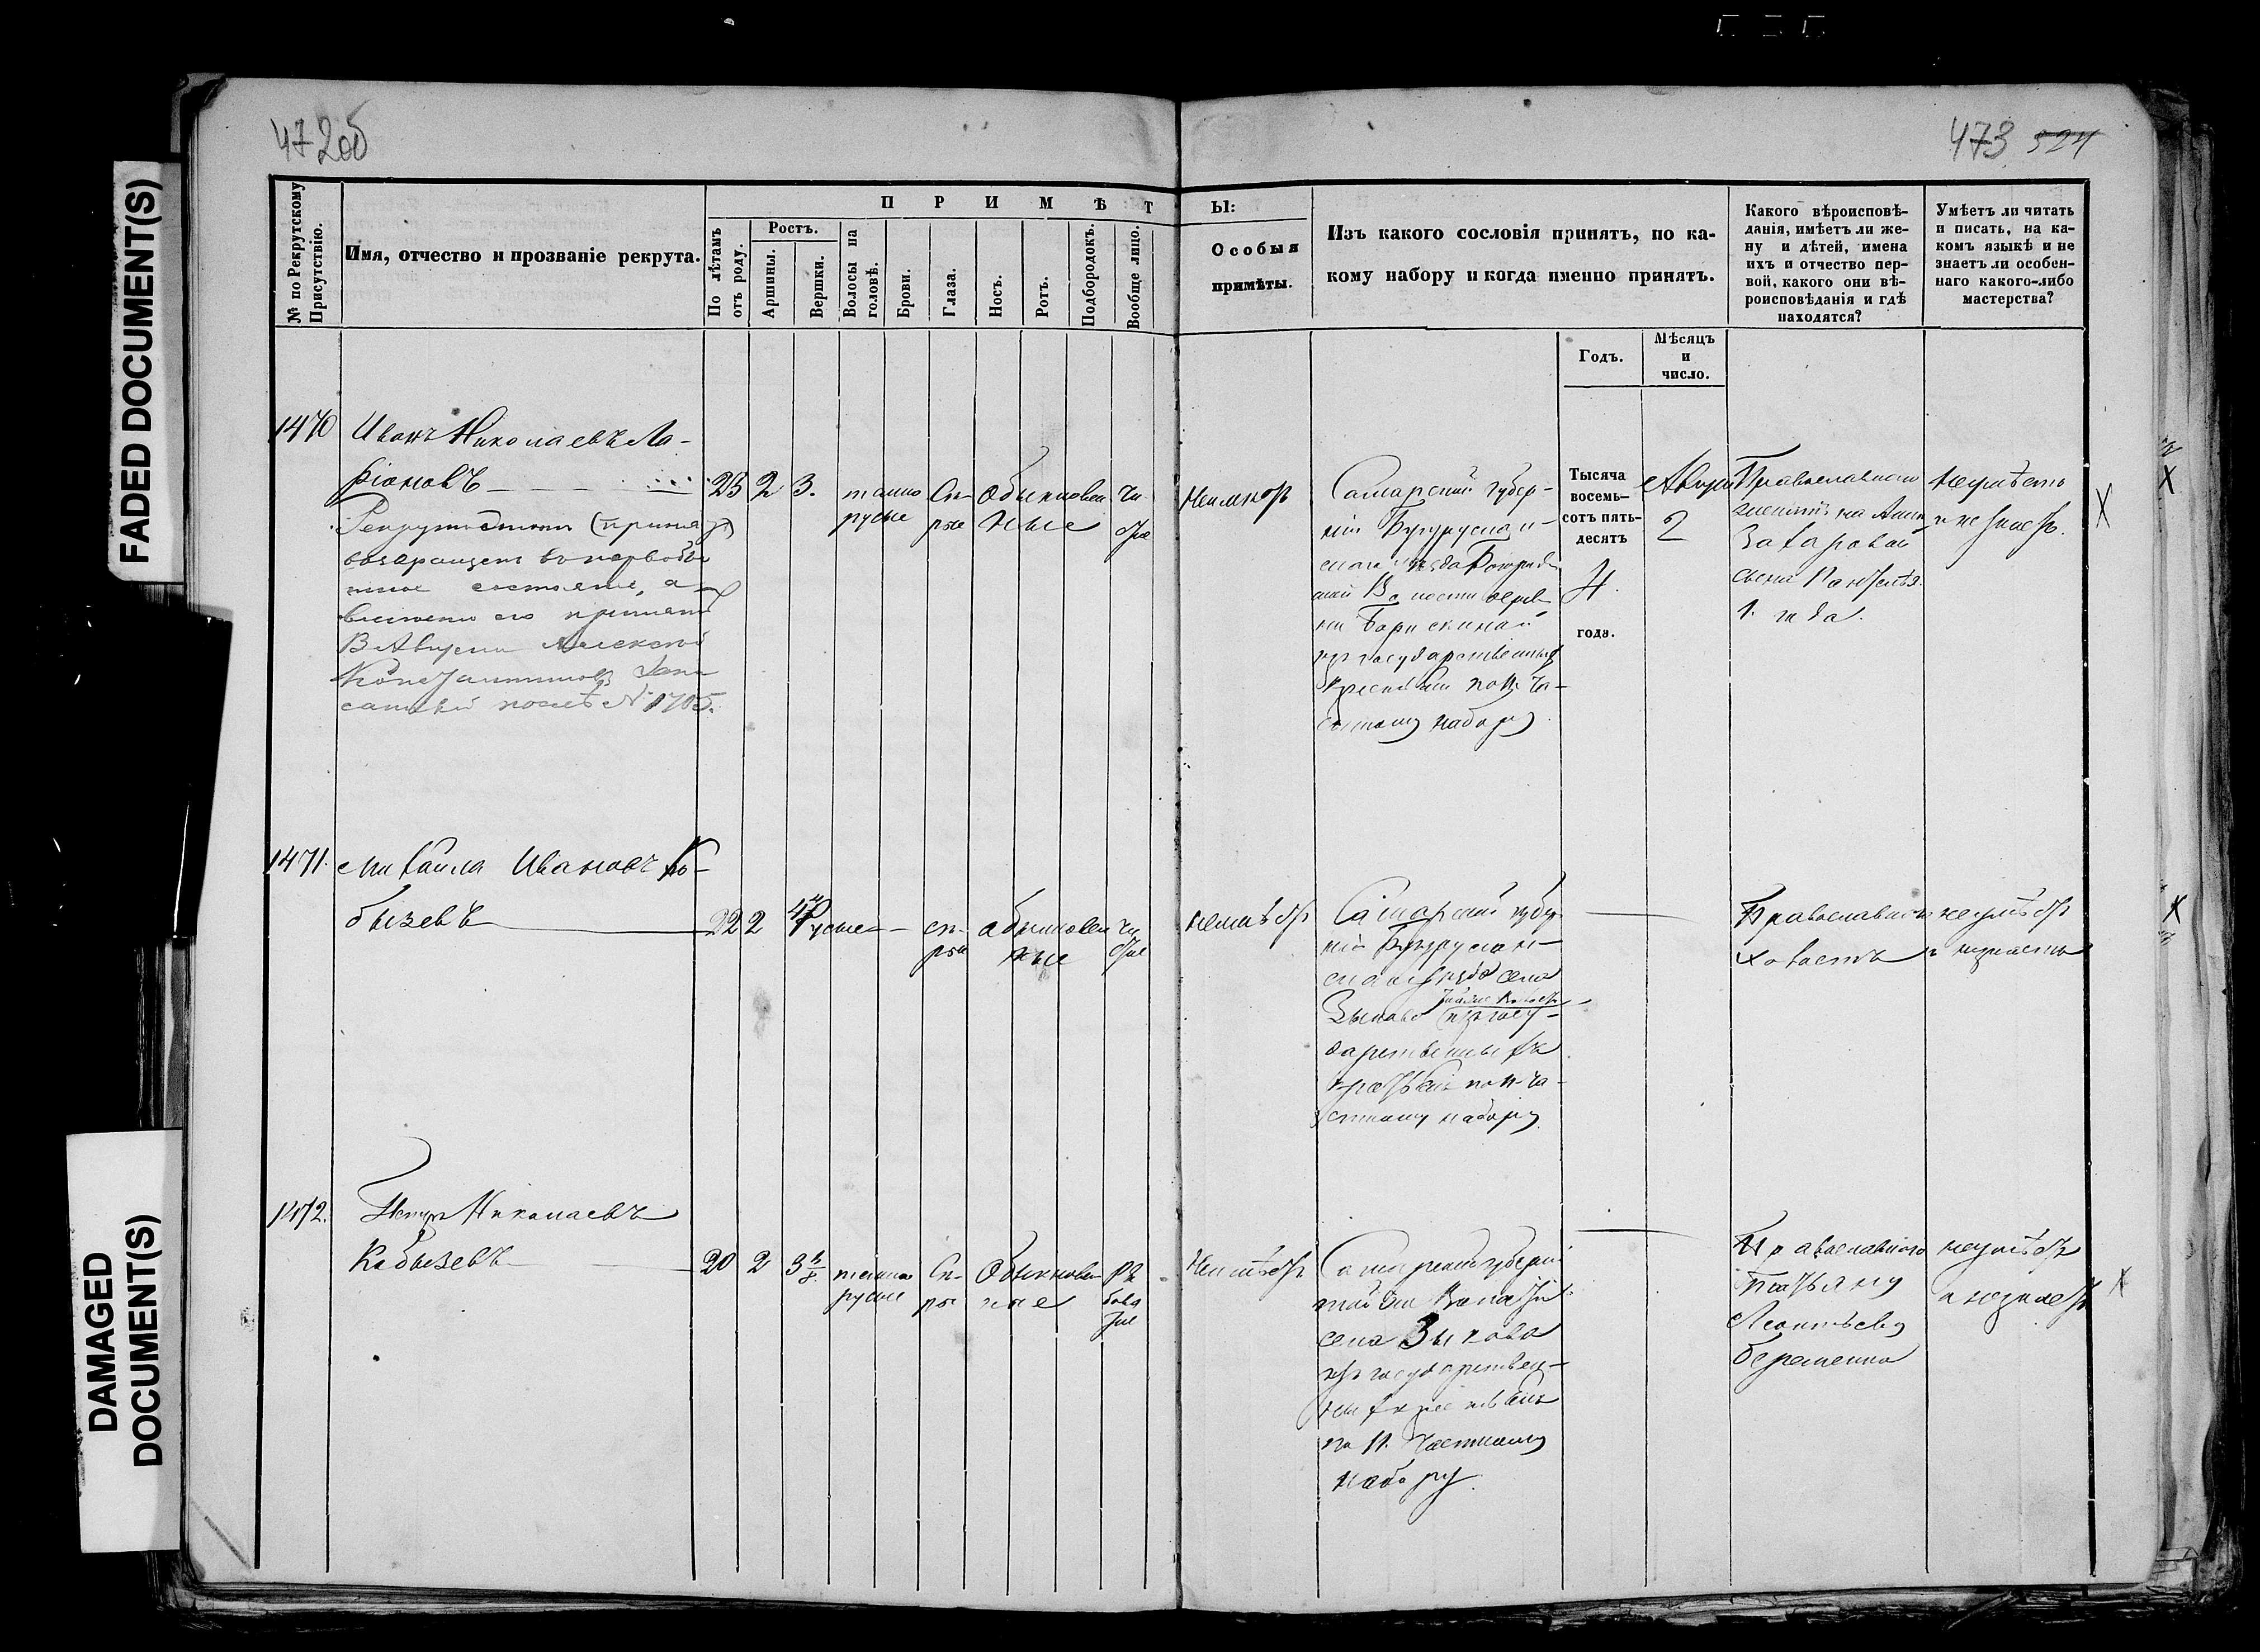 FADED DOCUMENT(S)
DAMAGED
DOCUMENT(S)
472об
473 524
№ по Рекрутскому
Присутствію.
Имя, отчество и прозваніе рекрута.
П Р И М Ѣ Т
По лѣтамъ
отъ роду.
Ростъ.
Аршины.
Вершки.
Волосы на
головѣ.
Брови.
Глаза.
Носъ.
Ротъ.
Подбородокъ.
Вообще лицо.
Ы:
Особыя
примѣты.
Изъ какого сословія принятъ, по ка-
кому набору и когда именно принятъ.
Какого вѣроисповѣ-
данія, имѣетъ ли же-
ну и дѣтей, имена
ихъ и отчество пер-
вой, какого они вѣ-
роисповѣданія и гдѣ
находятся?
Умѣетъ ли читать
и писать, на ка-
комъ языкѣ и не
знаетъ ли особен-
наго какого-либо
мастерства?
Годъ.
Мѣсяцъ
и
число.
1470
Иванъ Николаевъ Ла-
ріоновъ
возвращенъ въ первобы
тное состояніе, а
вместо его принятъ
Алексѣй
Константиновъ
№ 1705.
23 2 3.
темно
русые
Сѣ-
рые
Обыкновен
ные
чи
стое
Неимѣетъ
Самарской губер-
ніи Бугуруслан-
скаго уѣзда
Волости дерев
ни Борискиной
изъ государственныхъ
крестьянъ по 11 ча-
стному набору
Тысяча
восемь-
сотъ пять-
десятъ
4
года.
2
Православнаго
женатъ на Анне
Захаровой
сынъ
1. года.
Неумѣетъ
и не знаетъ.
1471.
Михайла Ивановъ Ко-
бызевъ
22 2 4
Русые
сѣ-
рые
обыкновен
ные
чи
стое
неимѣетъ
Самарской губер
ніи Бугуруслан-
скаго уѣзда села
Зыкова изъ госу-
дарственныхъ
крестьянъ по 11 ча-
стному набору
Православнаго
холостъ
неумѣетъ
и незнаетъ
1472.
Петръ Николаевъ
Кобызевъ
20 2 3
темно
русые
Сѣ-
рые
Обыкновен
ные
ря
бова
тое
Неимѣетъ
Самарской губерніи
той же Волости
села Зыкова
изъ государствен-
ныхъ крестьянъ
по 11. частному
набору.
Православнаго
Татьяну
Леонтьеву
беременна
неумѣетъ
и незнаетъ